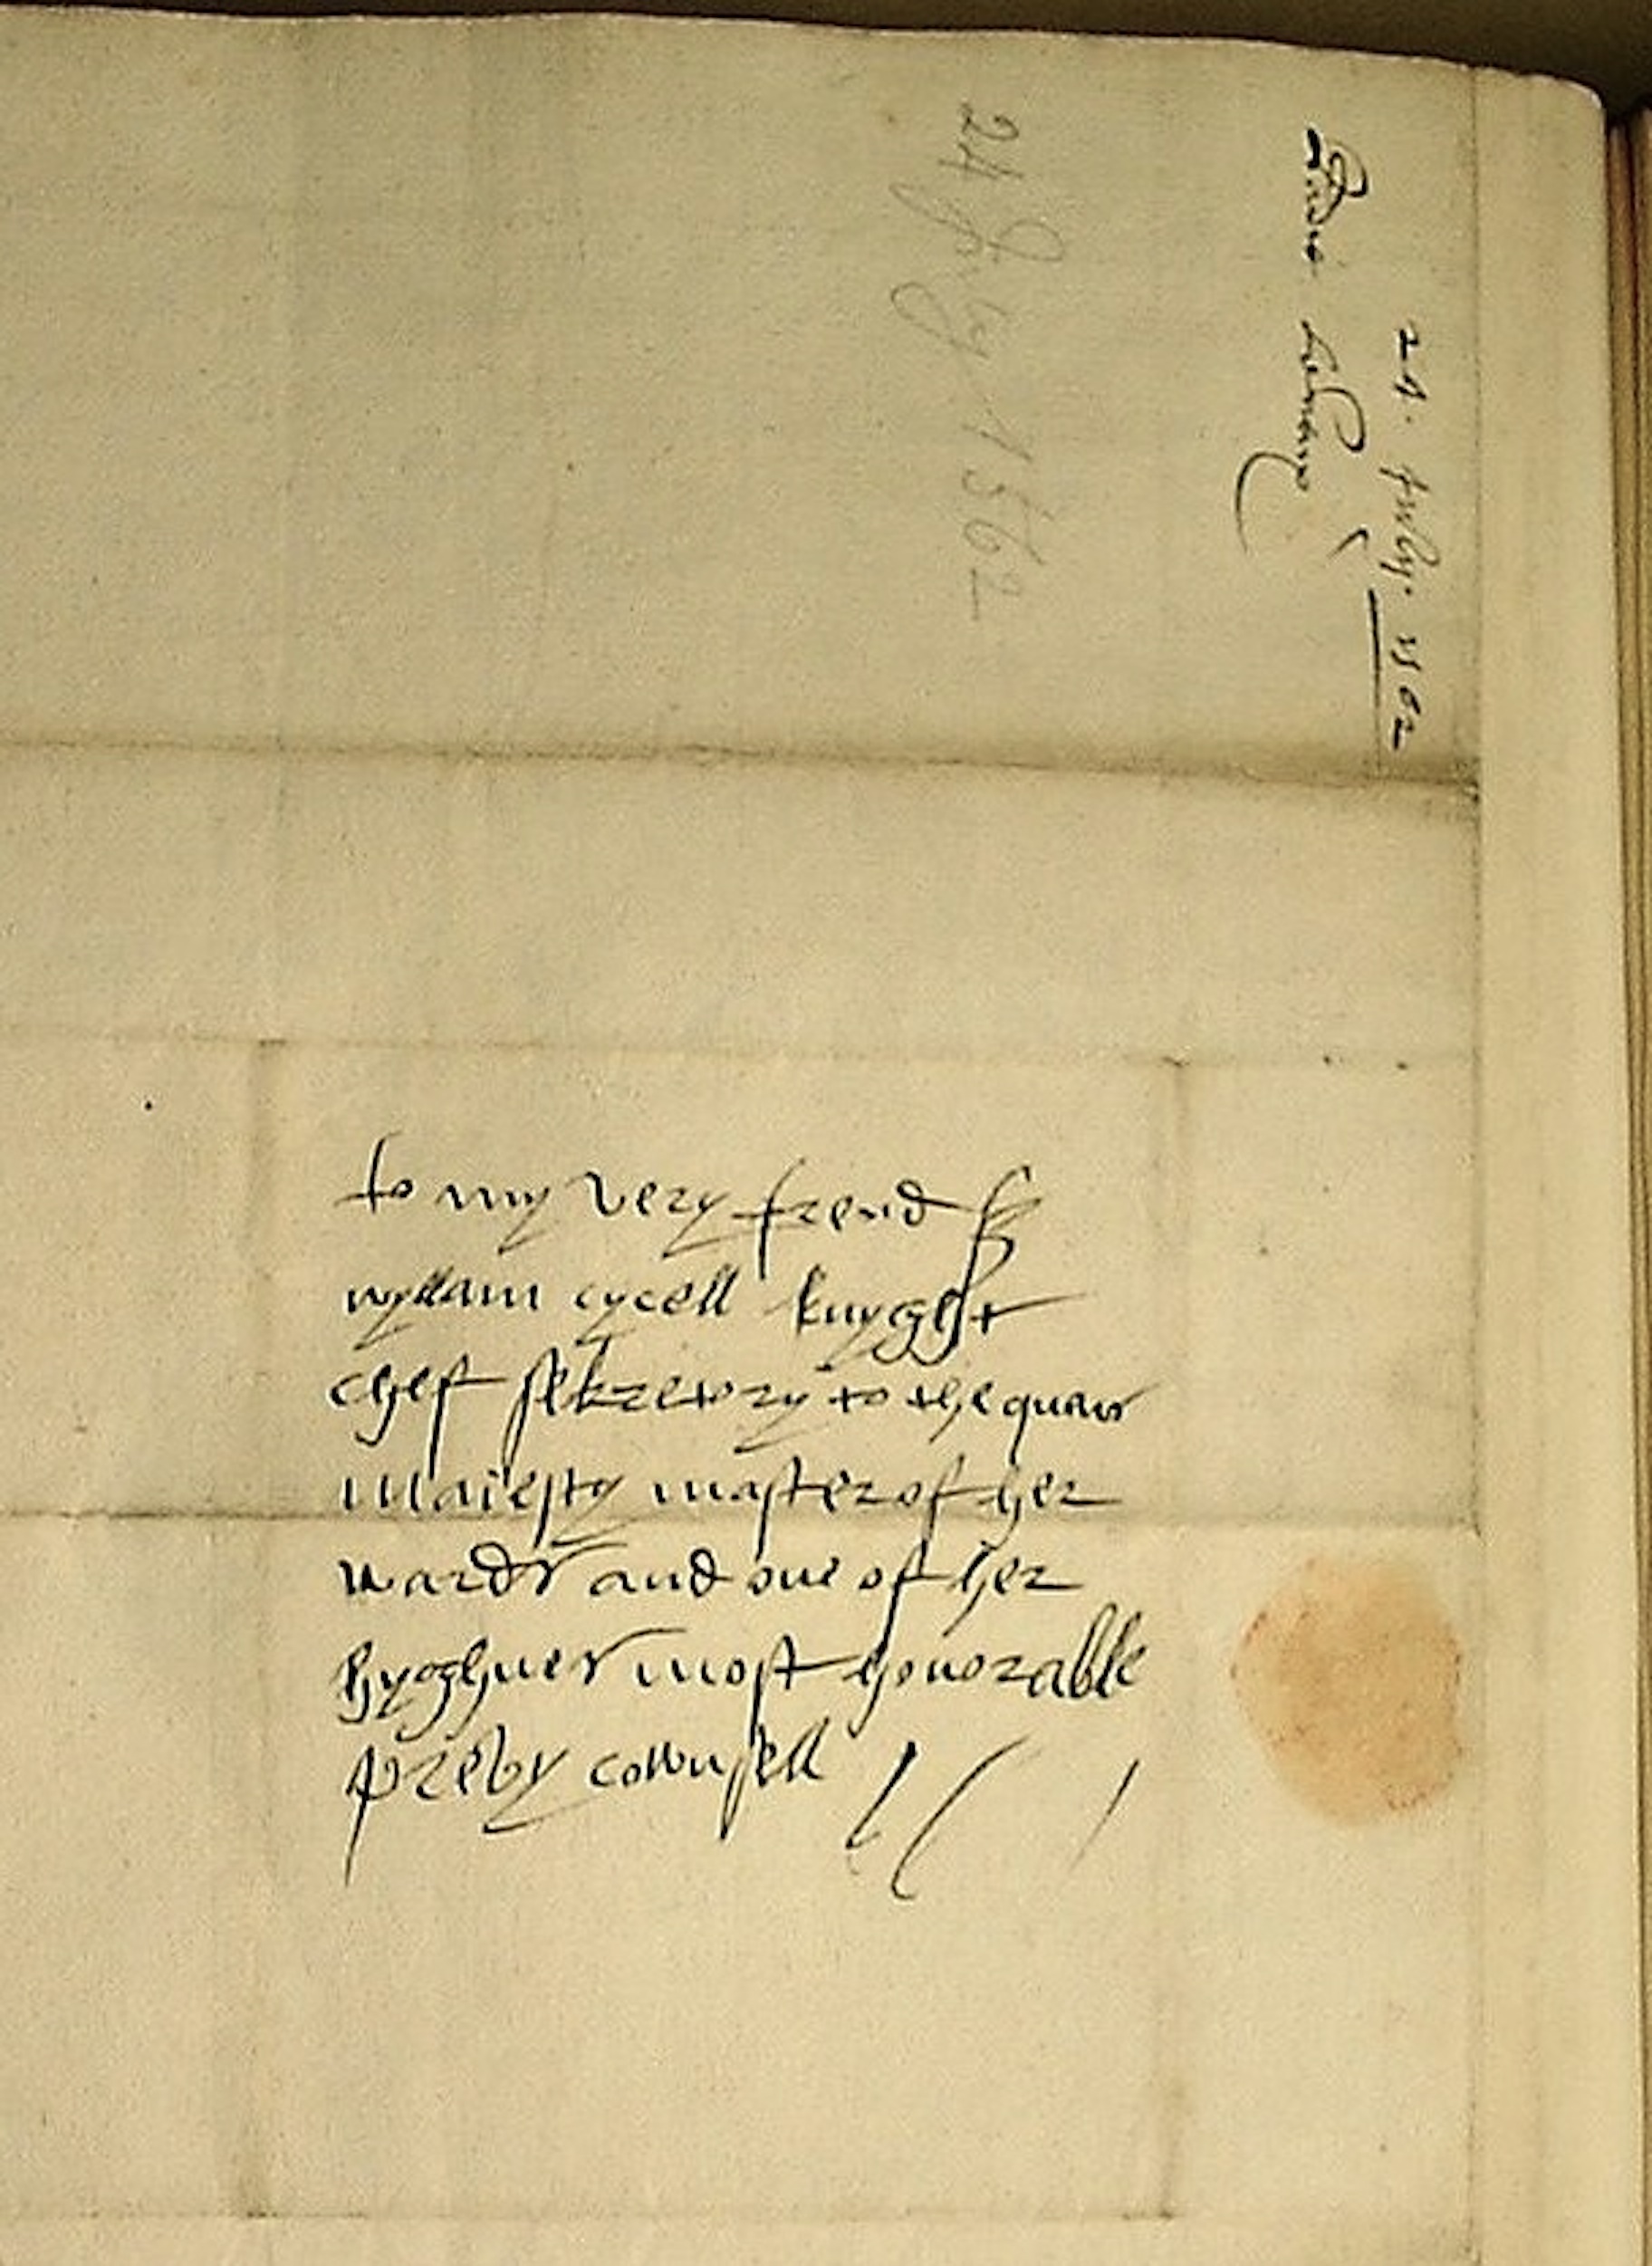 24. July. 1562
24 July 1562
to my very frend Sr
wyllam cycell knyght
chef sekretory to the quens
maiesty master of her
wardes and one of her
hyghnes most honorable
prevy cownsell